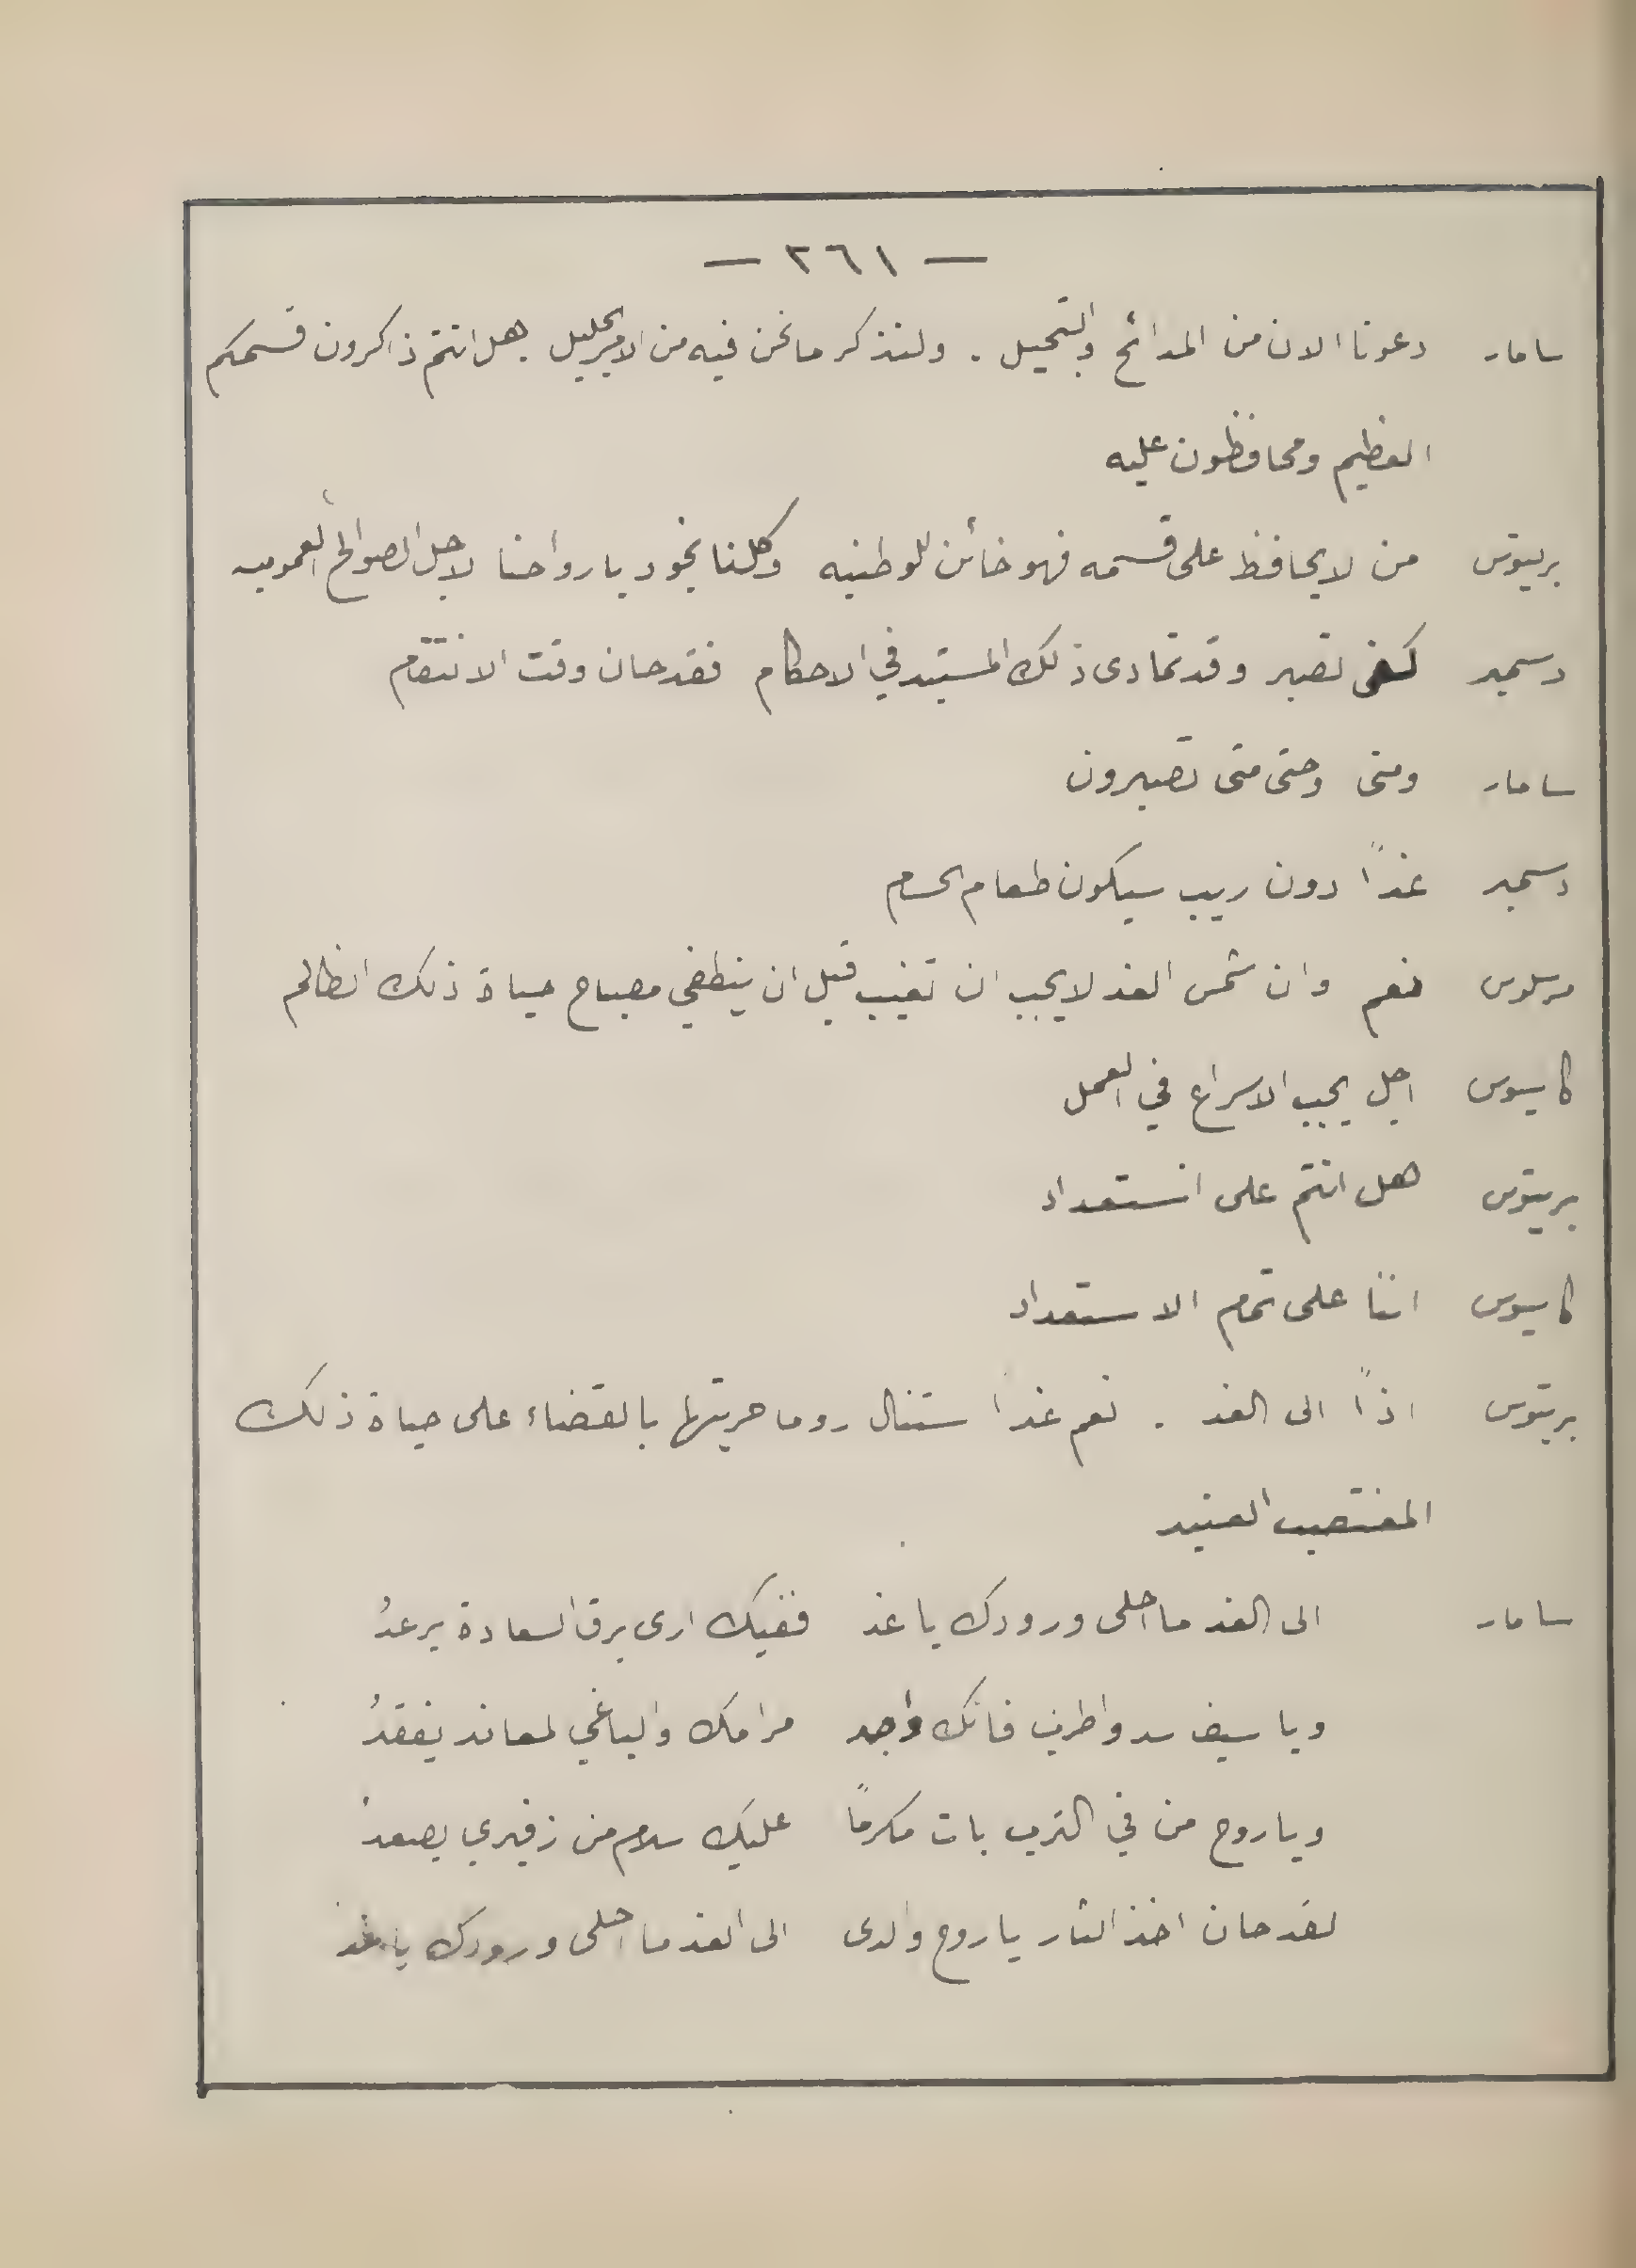 — ٢٦١ —
سامار دعونا الان من المدائح والتبجيل . ولنذكر ما نحن فيه من الامر الجليل . هل انتم ذاكرون قسمكم
العظيم ومحافظون عليه
بريتوس من لا يحافظ على قسمه فهو خائن للوطنيه وكلنا نجود بارواحنا لاجل الصوالح العموميه
دسمير كفى نصبر وقد تمادى ذلك المستبد في الاحكام فقد حان وقت الانتقام
سامار ومتى وحتى متى تصبرون
دسمير غداً دون ريب سيكون طعام الحسام
مرسلوس نعم وان شمس الغد لا يجب ان تغيب قبل ان ينطفي مصباح حياة ذلك الظالم
كاسيوس اجل يجب الاسراع في العمل
بريتوس هل انتم على استعداد
كاسيوس اننا على تمام الاستعداد
بريتوس اذاً الى الغد . نعم غداً ستنال روما حريتها بالقضاء على حياة ذلك
المغتصب العنيد
سامار الى الغد ما احلى ورودك يا غد ففيك ارى برق السعادة يرعدُ
ويا سيف سد واطرب فانك واجد مرامك والباغي لمعاند يفقدُ
ويا روح من في الترب بات مكرماً عليك سلام من زفيري يصعدُ
لقد حان اخذ الثار يا روح والدى الى الغد ما احلى ورودك يا غد